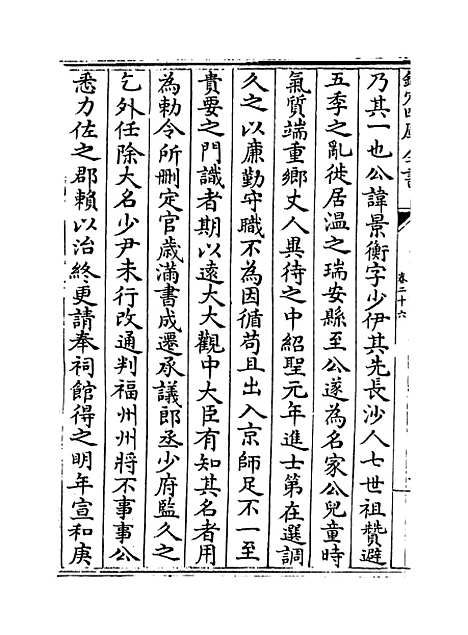 欽定四庫全書
卷二十六
乃其一也公諱景衡字少伊其先長沙人七世祖贊避
五季之亂徙居温之瑞安縣至公遂為名家公兒童時
氣質端重鄉丈人異待之中紹聖元年進士第在選調
久之以廉勤守職不為因循苟且出入京師足不一至
貴要之門識者期以遠大大觀中大臣有知其名者用
為勅令所刪定官歲滿書成遷承議郎丞少府監久之
乞外任除大名少尹未行改通判福州州將不事事公
悉力佐之郡賴以治終更請奉祠館得之明年宣和庚